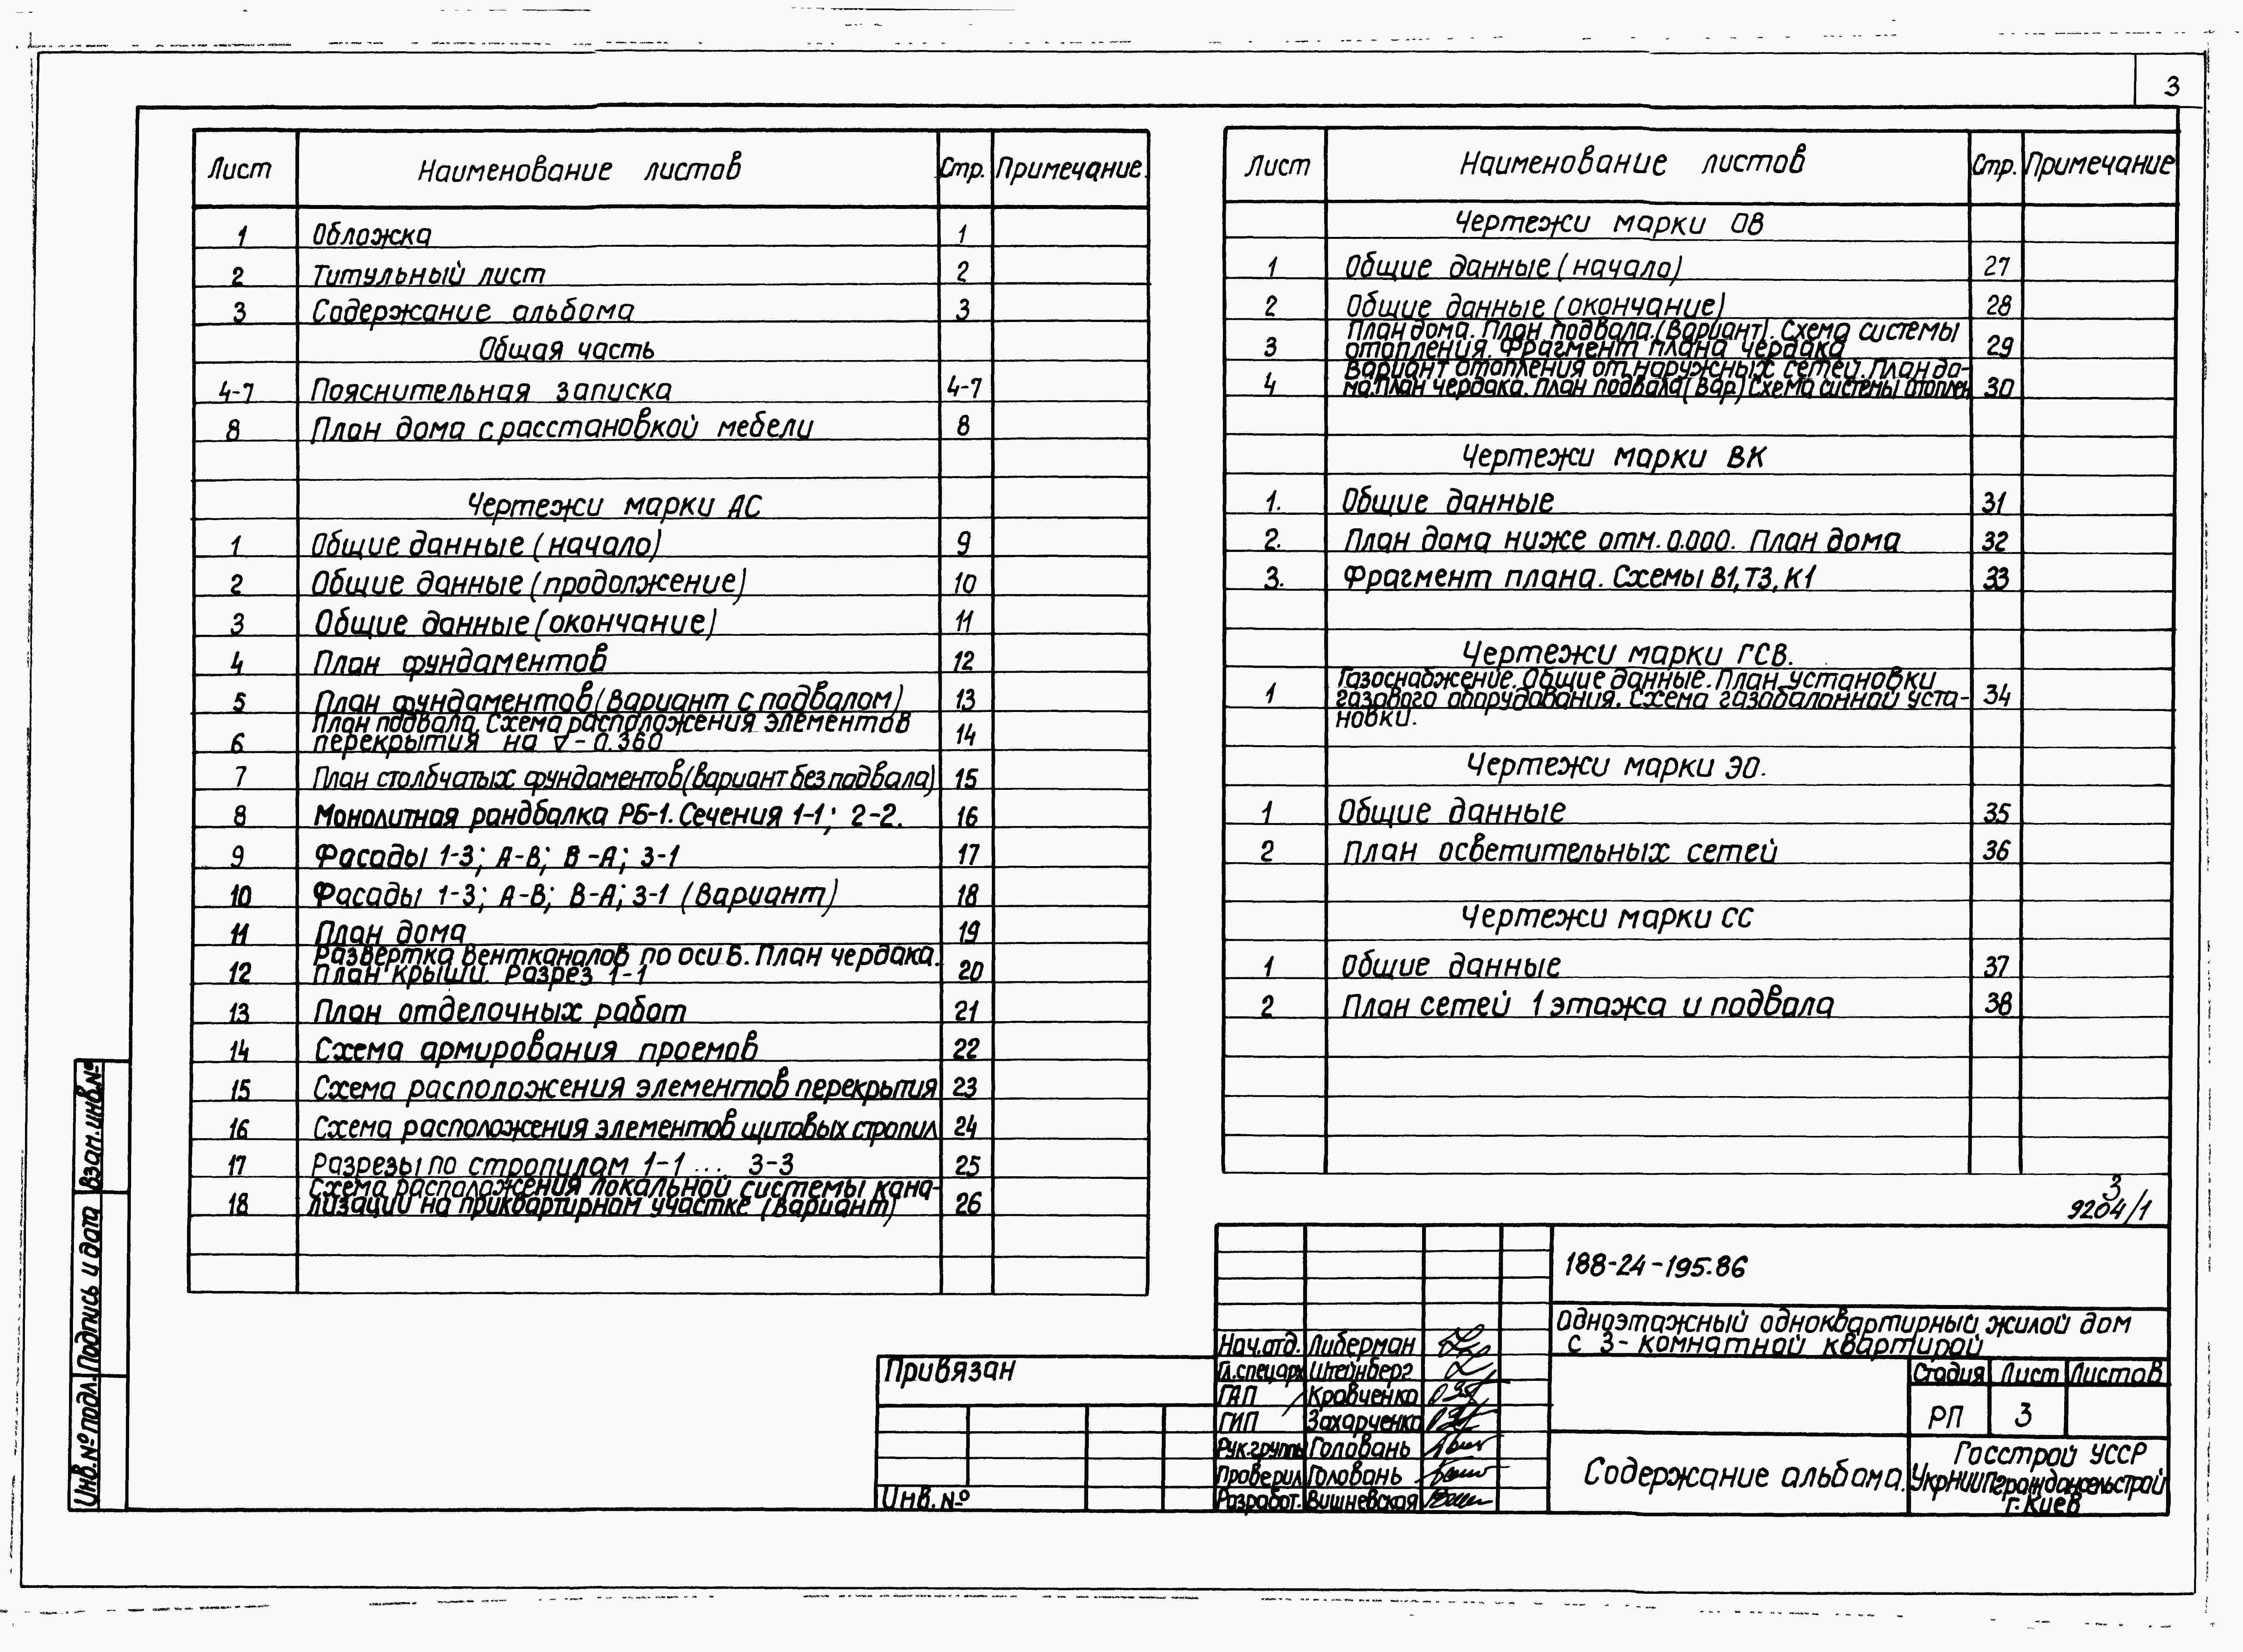 3
Лист Наименование листов Стр. Примечание.
1 Обложка 1
2 Титульный лист 2
3 Содержание альбома 3
Общая часть
4-7 Пояснительная записка 4-7
8 План дома с расстановкой мебели 8
Чертежи марки АС
1 Общие данные (начало) 9
2 Общие данные (продолжение) 10
3 Общие данные (окончание) 11
4 План фундаментов 12
5 План фундаментов (вариант с подвалом) 13
План подвала. Схема расположения элементов
6 перекрытия на ▽-0.360 14
7 План столбчатых фундаментов (вариант без подвала) 15
8 Монолитная рандбалка РБ-1. Сечения 1-1; 2-2. 16
9 Фасады 1-3; А-В; В-А; 3-1 17
10 Фасады 1-3; А-В; В-А; 3-1 (Вариант) 18
11 План дома 19
Развертка вентканалов по оси Б. План чердака.
12 План крыши. Разрез 1-1 20
13 План отделочных работ 21
14 Схема армирования проемов 22
15 Схема расположения элементов перекрытия 23
16 Схема расположения элементов щитовых стропил 24
17 Разрезы по стропилам 1-1 ... 3-3 25
Схема расположения локальной системы кана-
18 лизации на приквартирном участке (вариант) 26
Лист Наименование листов Стр. Примечание
Чертежи марки ОВ
1 Общие данные (начало) 27
2 Общие данные (окончание) 28
План дома. План подвала. (Вариант). Схема системы
3 отопления. Фрагмент плана чердака 29
Вариант отопления от наружных сетей. План до-
4 ма. План чердака. План подвала (Вар.) Схема системы отоплен 30
Чертежи марки ВК
1. Общие данные 31
2. План дома ниже отм. 0.000. План дома 32
3. Фрагмент плана. Схемы В1, Т3, К1 33
Чертежи марки ГСВ.
Газоснабжение. Общие данные. План установки
1 газового оборудования. Схема газобалонной уста- 34
новки.
Чертежи марки ЭО.
1 Общие данные 35
2 План осветительных сетей 36
Чертежи марки СС
1 Общие данные 37
2 План сетей 1 этажа и подвала 38
3
9204/1
188-24-195.86
Одноэтажный одноквартирный жилой дом
с 3-комнатной квартирой
Нач.отд. Либерман
Гл.спец.арх Штейнберг
ГАП Кравченко
ГИП Захарченко
Рук.группы Головань
Проверил Головань
Разработ. Вишневская
Стадия Лист Листов
РП 3
Содержание альбома.
Госстрой УССР
УкрНИИПграждансельстрой
г. Киев
Привязан
Инв. №
Взам. инв. №
Подпись и дата
Инв. № подл.